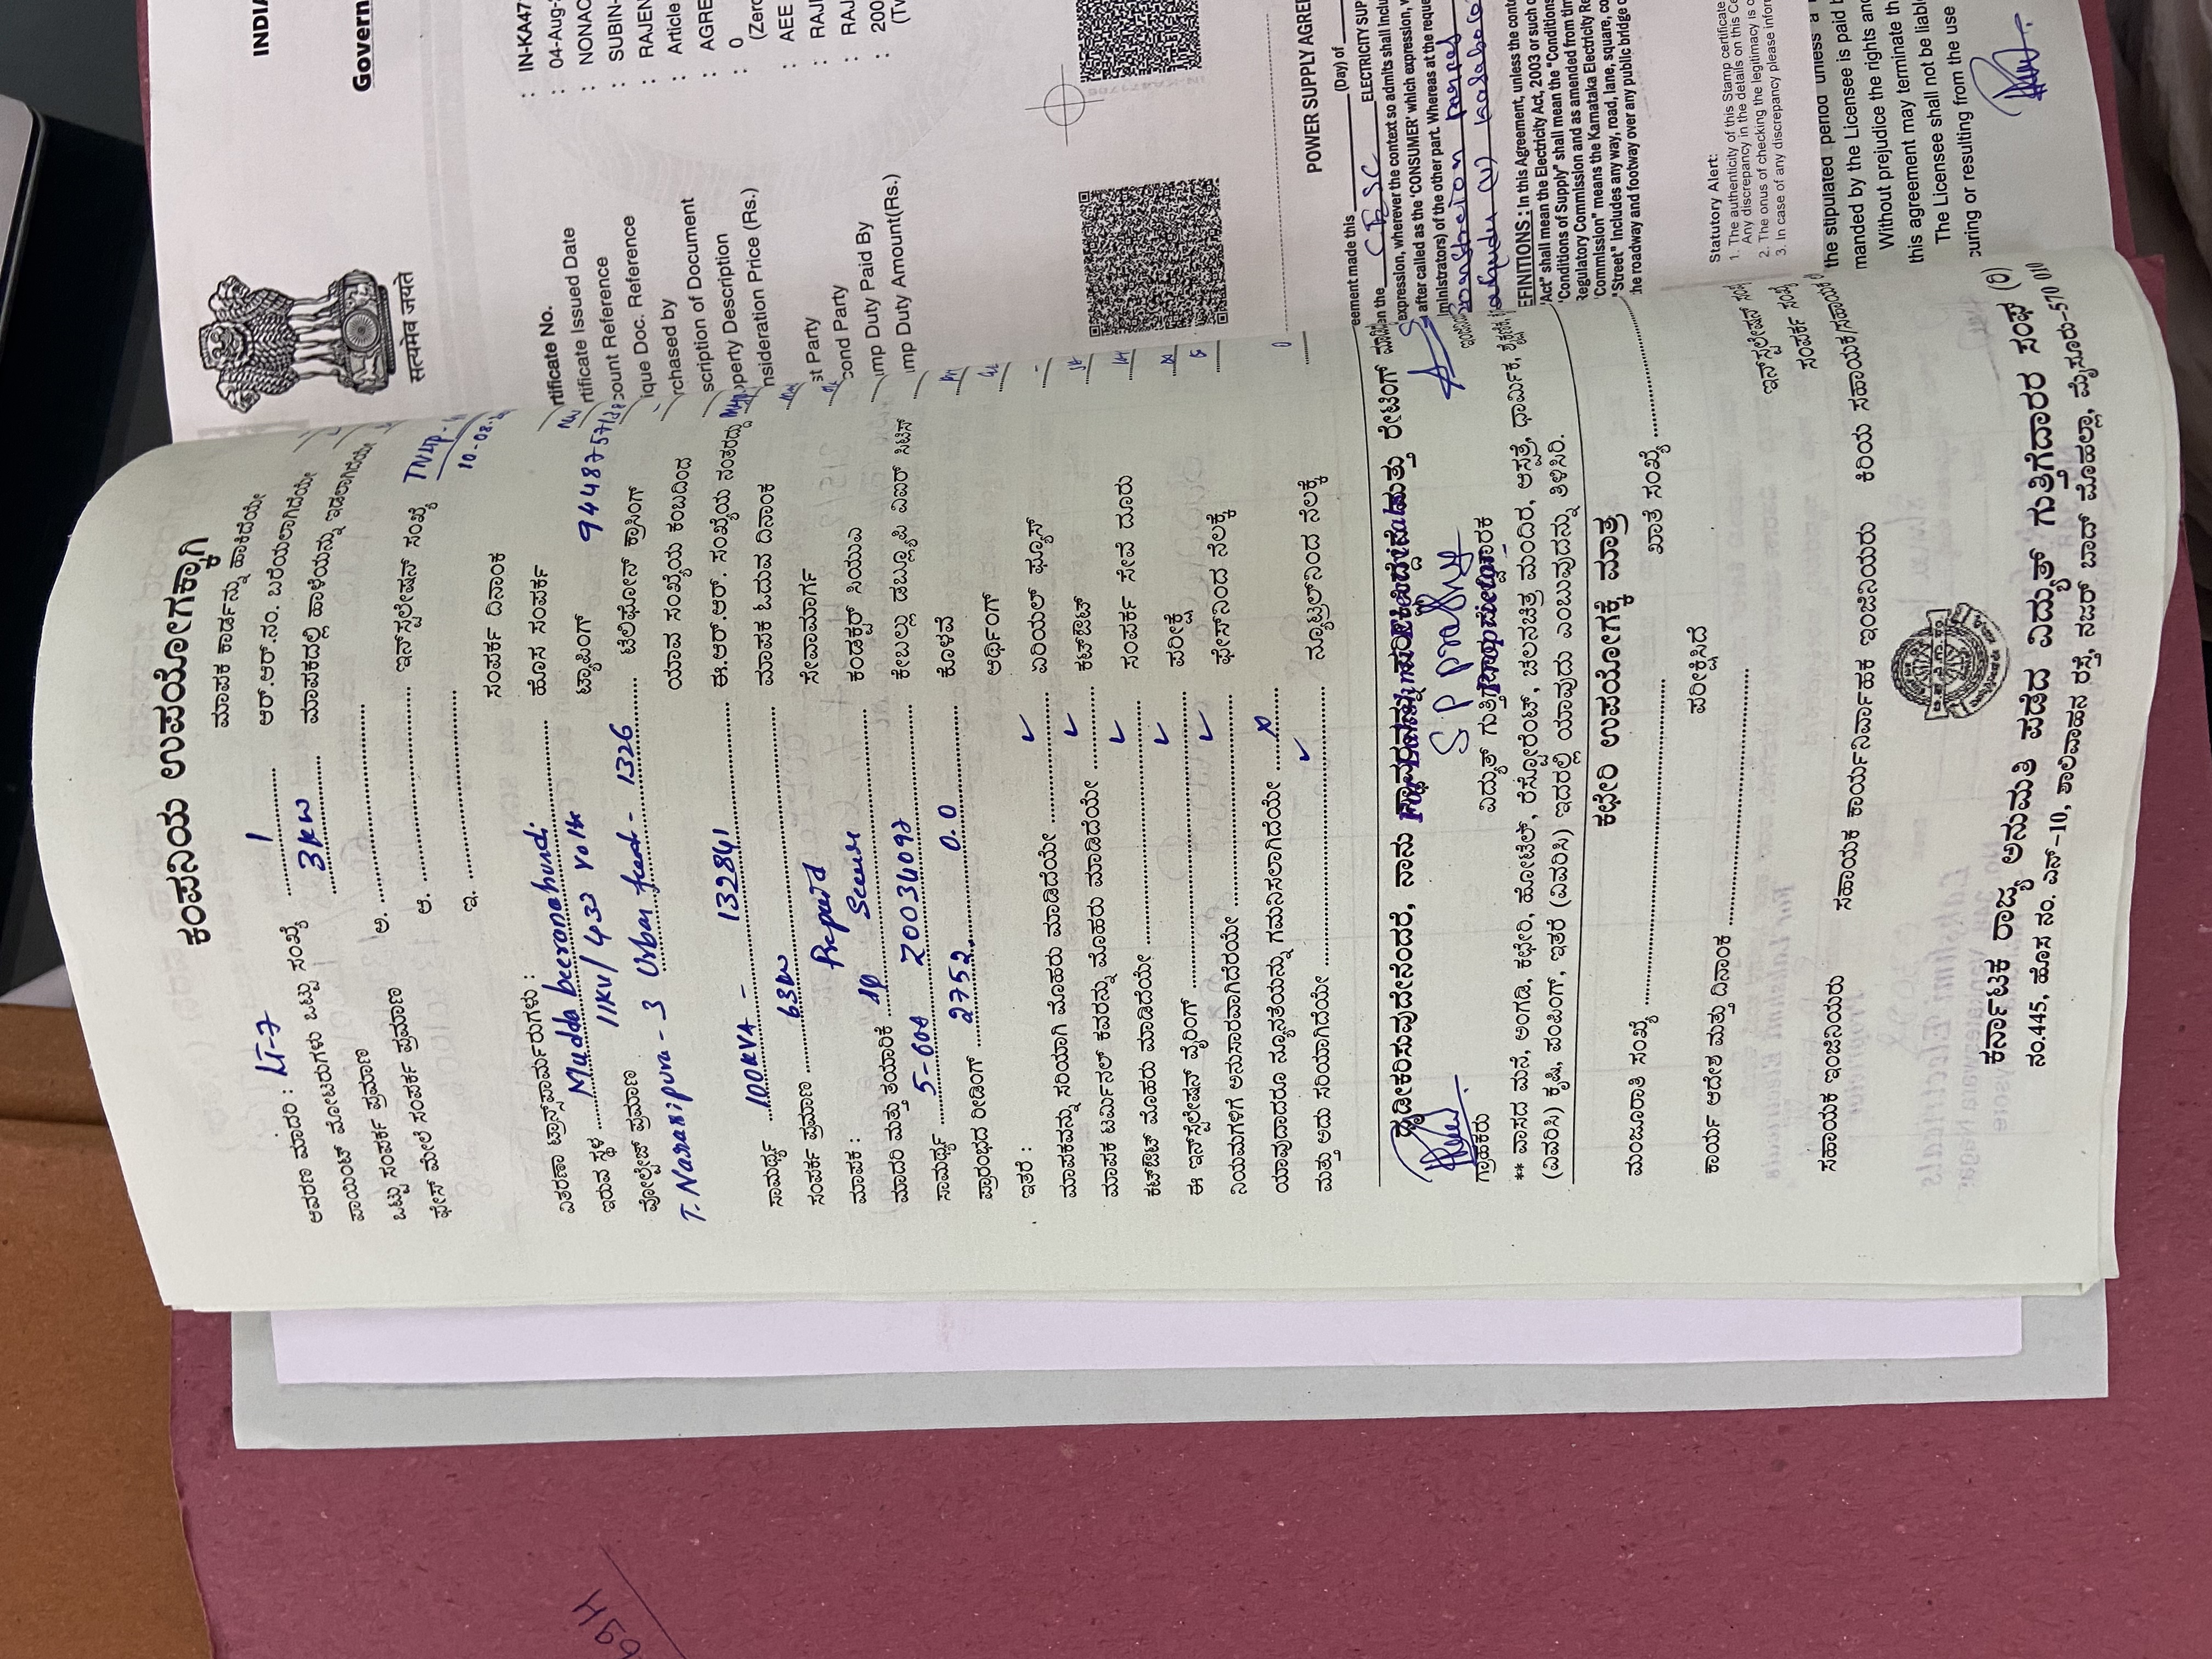 ಕಂಪನಿಯ ಉಪಯೋಗಕ್ಕಾಗಿ
ಆವರಣ ಮಾದರಿ : LT-7
ಮಾಪಕ ಕಾರ್ಡನ್ನು ಹಾಕಿದೆಯೇ
ಪಾಯಿಂಟ್ ಮೋಟರುಗಳು ಒಟ್ಟು ಸಂಖ್ಯೆ 1
ಆರ್.ಆರ್.ನಂ. ಬರೆಯಲಾಗಿದೆಯೇ
ಒಟ್ಟು ಸಂಪರ್ಕ ಪ್ರಮಾಣ 3KW
ಮಾಪಕದಲ್ಲಿ ಹಾಳೆಯನ್ನು ಇಡಲಾಗಿದೆಯೇ
ಫೇಸ್ ಮೇಲೆ ಸಂಪರ್ಕ ಪ್ರಮಾಣ ಅ.
ಆ. ಇನ್‌ಸ್ಟಲೇಷನ್ ಸಂಖ್ಯೆ
ಇ.
ಸಂಪರ್ಕ ದಿನಾಂಕ 10-08.
ವಿತರಣಾ ಟ್ರಾನ್ಸ್‌ಫಾರ್ಮರುಗಳು :
ಹೊಸ ಸಂಪರ್ಕ
ಇರುವ ಸ್ಥಳ Mudda beeranahundi
ಟ್ಯಾಪಿಂಗ್
ವೋಲ್ಟೇಜ್ ಪ್ರಮಾಣ 11KV/433 Volts
ಟೆಲಿಫೋನ್ ಕ್ರಾಸಿಂಗ್ 94487571
T. Narasipura - 3 Urban feed - 1326
ಯಾವ ಸಂಖ್ಯೆಯ ಕಂಬದಿಂದ
ಸಾಮರ್ಥ್ಯ 100KVA - 132841
ಈ.ಆರ್.ಆರ್. ಸಂಖ್ಯೆಯ ನಂತರದ್ದು
ಸಂಪರ್ಕ ಪ್ರಮಾಣ 63KW
ಮಾಪಕ ಓದುವ ದಿನಾಂಕ
ಮಾಪಕ : Prepaid
ಸೇವಾಮಾರ್ಗ
ಮಾದರಿ ಮತ್ತು ತಯಾರಿಕೆ 1P Secure
ಕಂಡಕ್ಟರ್ ಸಿಯುಎ
ಸಾಮರ್ಥ್ಯ 5-60A Z0034097
ಕೇಬಲ್ಲು ಡಬ್ಲ್ಯೂಪಿ ಏಐರ್ ಸಿಟಿಸ್
ಪ್ರಾರಂಭದ ರೀಡಿಂಗ್ 2752. 0.0
ಕೊಳವೆ
ಇತರೆ :
ಆರ್ಥಿಂಗ್
ಮಾಪಕವನ್ನು ಸರಿಯಾಗಿ ಮೊಹರು ಮಾಡಿದೆಯೇ ✓
ಏರಿಯಲ್ ಫ್ಯೂಸ್
ಮಾಪಕ ಟರ್ಮಿನಲ್ ಕವರನ್ನು ಮೊಹರು ಮಾಡಿದೆಯೇ ✓
ಕಟ್‌ಔಟ್
ಕಟ್‌ಔಟ್ ಮೊಹರು ಮಾಡಿದೆಯೇ ✓
ಸಂಪರ್ಕ ಸೇವೆ ದೂರು
ಈ ಇನ್‌ಸ್ಟೆಲೇಷನ್ ವೈರಿಂಗ್ ✓
ಪರೀಕ್ಷೆ
ನಿಯಮಗಳಿಗೆ ಅನುಸಾರವಾಗಿದೆಯೇ ✓
ಫೇಸ್‌ನಿಂದ ನೆಲಕ್ಕೆ
ಯಾವುದಾದರೂ ನ್ಯೂನತೆಯನ್ನು ಗಮನಿಸಲಾಗಿದೆಯೇ X
ಮತ್ತು ಅದು ಸರಿಯಾಗಿದೆಯೇ ✓
ನ್ಯೂಟ್ರಲ್‌ನಿಂದ ನೆಲಕ್ಕೆ
ದೃಢೀಕರಿಸುವುದೇನೆಂದರೆ, ನಾನು
ಮತ್ತು ರೇಟಿಂಗ್
ಗ್ರಾಹಕರು
S P
ವಿದ್ಯುತ್ ಗುತ್ತಿಗೆದಾರ
Proprietor
** ವಾಸದ ಮನೆ, ಅಂಗಡಿ, ಕಛೇರಿ, ಹೋಟೆಲ್, ರೆಸ್ಟೋರೆಂಟ್, ಚಲನಚಿತ್ರ ಮಂದಿರ, ಆಸ್ಪತ್ರೆ, ಧಾರ್ಮಿಕ, ಶೈಕ್ಷಣಿಕ
(ವಿವರಿಸಿ) ಕೃಷಿ, ಪಂಪಿಂಗ್, ಇತರೆ (ವಿವರಿಸಿ) ಇದರಲ್ಲಿ ಯಾವುದು ಎಂಬುವುದನ್ನು ತಿಳಿಸಿರಿ.
ಕಛೇರಿ ಉಪಯೋಗಕ್ಕೆ ಮಾತ್ರ
ಮಂಜೂರಾತಿ ಸಂಖ್ಯೆ
ಖಾತೆ ಸಂಖ್ಯೆ
ಪರೀಕ್ಷಿಸಿದೆ
ಕಾರ್ಯ ಆದೇಶ ಮತ್ತು ದಿನಾಂಕ
ಇನ್‌ಸ್ಟಲೇಷನ್
ಸಂಪರ್ಕ ಸಂಖ್ಯೆ
ಸಹಾಯಕ ಇಂಜಿನಿಯರು
ಸಹಾಯಕ ಕಾರ್ಯನಿರ್ವಾಹಕ ಇಂಜಿನಿಯರು
ಕಿರಿಯ ಸಹಾಯಕ/ಸಹಾಯಕ
ಕರ್ನಾಟಕ ರಾಜ್ಯ ಅನುಮತಿ ಪಡೆದ ವಿದ್ಯುತ್ ಗುತ್ತಿಗೆದಾರರ ಸಂಘ (ರಿ)
ನಂ.445, ಹೊಸ ನಂ. ಎನ್-10, ಶಾಲಿವಾಹನ ರಸ್ತೆ, ನಜರ್ ಬಾದ್ ಮೊಹಲ್ಲಾ, ಮೈಸೂರು-570 010
सत्यमेव जयते
INDIA
Govern
rtificate No. : IN-KA47
rtificate Issued Date : 04-Aug-
count Reference : NONAC
ique Doc. Reference : SUBIN-
rchased by : RAJEN
scription of Document : Article
operty Description : AGRE
nsideration Price (Rs.) : 0
(Zero
st Party : AEE
cond Party : RAJE
mp Duty Paid By : RAJ
mp Duty Amount(Rs.) : 200
(Tw
POWER SUPPLY AGREE
eement made this (Day of)
n the CESC ELECTRICITY SUP
expression, wherever the context so admits shall inclu
after called as the 'CONSUMER' which expression, w
ministrators) of the other part. Whereas at the reque
EFINITIONS : In this Agreement, unless the cont
'Act" shall mean the Electricity Act, 2003 or such o
'Conditions of Supply" shall mean the "Conditions
Regulatory Commission and as amended from tim
'Commission" means the Karnataka Electricity Re
"Street" Includes any way, road, lane, square, co
the roadway and footway over any public bridge o
Statutory Alert:
1. The authenticity of this Stamp certificate
Any discrepancy in the details on this Ce
2. The onus of checking the legitimacy is o
3. In case of any discrepancy please infor
the stipulated period unless a
manded by the Licensee is paid b
Without prejudice the rights and
this agreement may terminate th
The Licensee shall not be liable
curing or resulting from the use